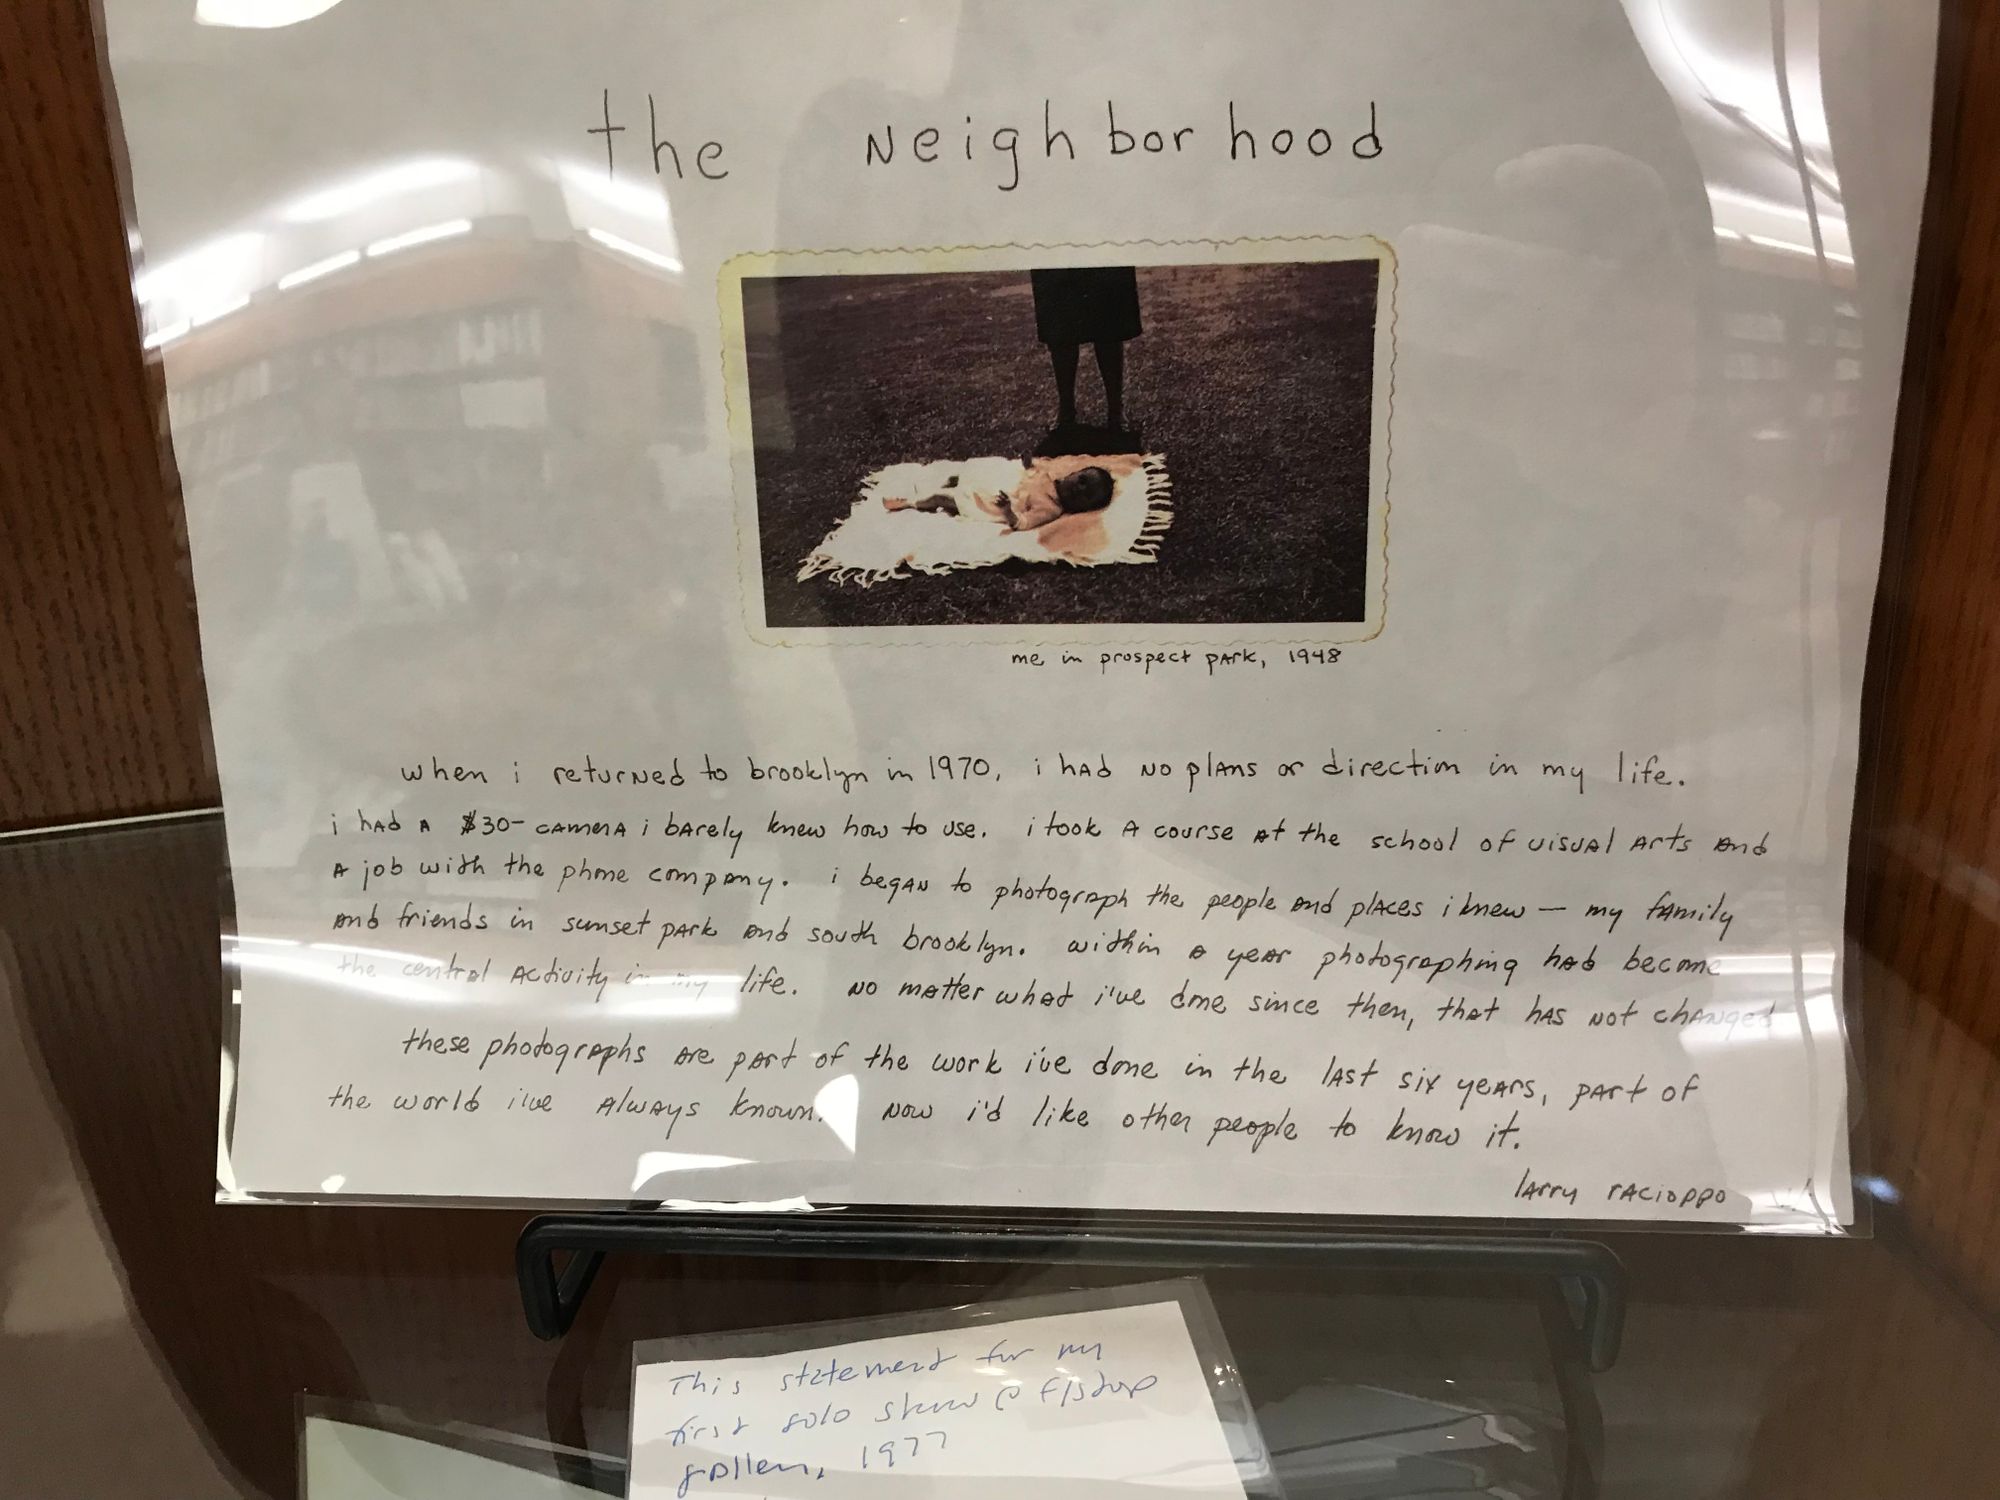 the Neighborhood
me in prospect park, 1948
when i returned to brooklyn in 1970, i had no plans or direction in my life.
i had a $30- camera i barely knew how to use. i took a course at the school of visual arts and
a job with the phone company. i began to photograph the people and places i knew — my family
and friends in sunset park and south brooklyn. within a year photographing had become
the central activity in my life. no matter what i've done since then, that has not changed
these photographs are part of the work i've done in the last six years, part of
the world i've always known. now i'd like other people to know it.
larry racioppo
This statement for my
first solo show @ f/stop
gallery, 1977